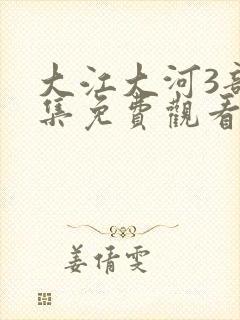 大江大河3部
集免费觀看
姜倩雯